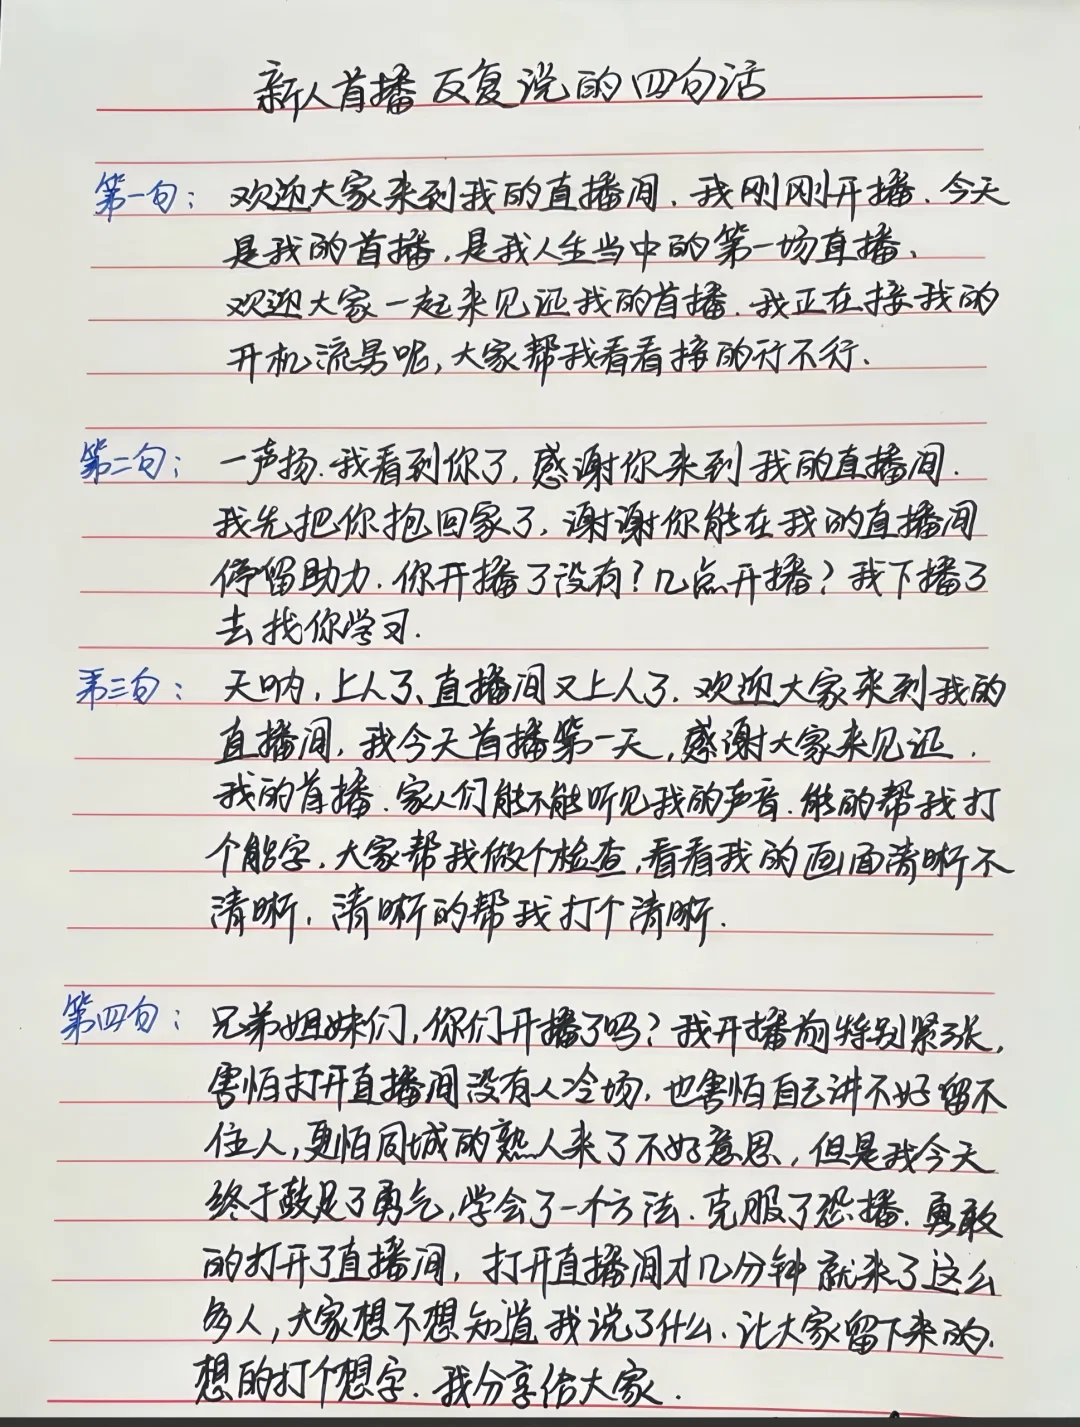 新人首播反复说的四句话
第一句：欢迎大家来到我的直播间，我刚刚开播，今天
是我的首播，是我人生当中的第一场直播，
欢迎大家一起来见证我的首播，我正在接我的
开机流量呢，大家帮我看看接的行不行.
第二句：一声扬，我看到你了，感谢你来到我的直播间.
我先把你抱回家了，谢谢你能在我的直播间
停留助力，你开播了没有？几点开播？我下播了
去找你学习.
第三句：天呐，上人了、直播间又上人了，欢迎大家来到我的
直播间，我今天首播第一天，感谢大家来见证，
我的首播，家人们能不能听见我的声音，能的帮我打
个能字，大家帮我做个检查，看看我的画面清晰不
清晰，清晰的帮我打个清晰.
第四句：兄弟姐妹们，你们开播了吗？我开播前特别紧张，
害怕打开直播间没有人冷场，也害怕自己讲不好留不
住人，更怕同城的熟人来了不好意思，但是我今天
终于鼓足了勇气，学会了一个方法，克服了恐播，勇敢
的打开了直播间，打开直播间才几分钟就来了这么
多人，大家想不想知道我说了什么，让大家留下来的，
想的打个想字，我分享给大家.